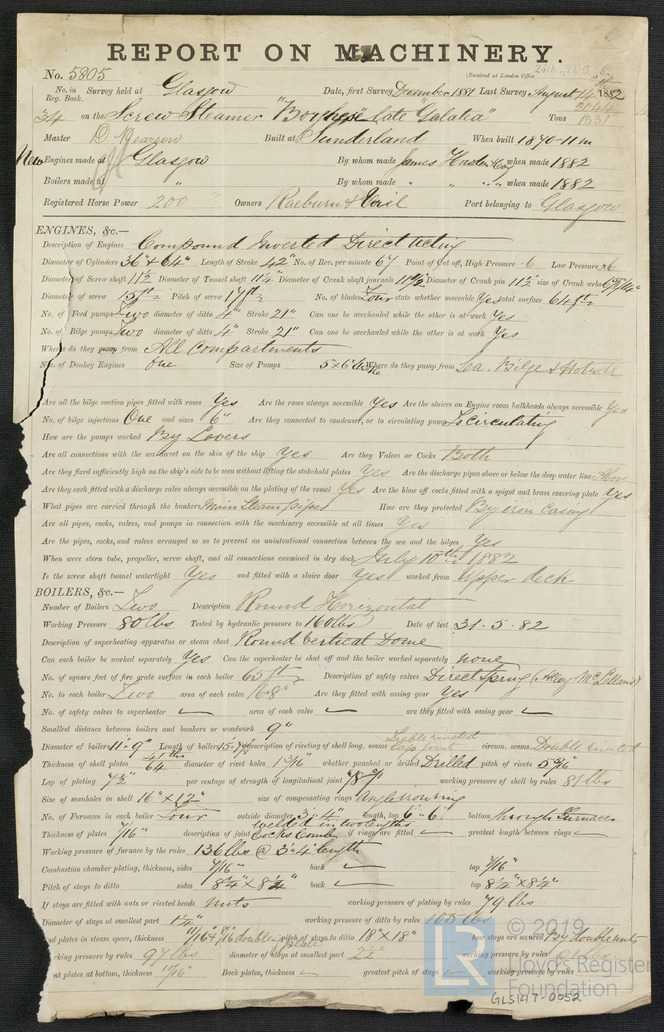 REPORT ON MACHINERY.
No. 5805 (Received at London Office
No. in Reg. Book. Survey held at Glasgow Date, first Survey December 1881 Last Survey August 1882
34 on the Screw Steamer "Borghese" late "Galatea" Tons 2044 1331
Master D. Pearson Built at Sunderland When built 1870-11m
New Engines made at Glasgow By whom made James Howden & Co when made 1882
Boilers made at " By whom made " " " when made 1882
Registered Horse Power 200 Owners Raeburn & Verel Port belonging to Glasgow
ENGINES, &c.—
Description of Engines Compound Inverted Direct Acting
Diameter of Cylinders 36" & 64" Length of Stroke 42" No. of Rev. per minute 67 Point of Cut off, High Pressure .6 Low Pressure .6
Diameter of Screw shaft 11½ Diameter of Tunnel shaft 11¼" Diameter of Crank shaft journals 11½" Diameter of Crank pin 11½" size of Crank webs
Diameter of screw 15ft Pitch of screw 17ft No. of blades Four state whether moveable Yes total surface 64ft
No. of Feed pumps Two diameter of ditto 4" Stroke 21" Can one be overhauled while the other is at work Yes
No. of Bilge pumps Two diameter of ditto 4" Stroke 21" Can one be overhauled while the other is at work Yes
Where do they pump from All Compartments
No. of Donkey Engines One Size of Pumps 5"x6" Stroke Where do they pump from Sea, Bilge & Hotwell
Are all the bilge suction pipes fitted with roses Yes Are the roses always accessible Yes Are the sluices on Engine room bulkheads always accessible Yes
No. of bilge injections One and sizes 6" Are they connected to condenser, or to circulating pump To circulating
How are the pumps worked By Levers
Are all connections with the sea direct on the skin of the ship Yes Are they Valves or Cocks Both
Are they fixed sufficiently high on the ship's side to be seen without lifting the stokehold plates Yes Are the discharge pipes above or below the deep water line Above
Are they each fitted with a discharge valve always accessible on the plating of the vessel Yes Are the blow off cocks fitted with a spigot and brass covering plate Yes
What pipes are carried through the bunkers Main Steam pipes How are they protected By iron casing
Are all pipes, cocks, valves, and pumps in connection with the machinery accessible at all times Yes
Are the pipes, cocks, and valves arranged so as to prevent an unintentional connection between the sea and the bilges Yes
When were stern tube, propeller, screw shaft, and all connections examined in dry dock July 10th 1882
Is the screw shaft tunnel watertight Yes and fitted with a sluice door Yes worked from Upper deck
BOILERS, &c.—
Number of Boilers Two Description Round Horizontal
Working Pressure 80 lbs Tested by hydraulic pressure to 160 lbs Date of test 31.5.82
Description of superheating apparatus or steam chest Round Vertical Dome
Can each boiler be worked separately Yes Can the superheater be shut off and the boiler worked separately none
No. of square feet of fire grate surface in each boiler 63 ft Description of safety valves Direct Spring
No. to each boiler Two area of each valve Are they fitted with easing gear Yes
No. of safety valves to superheater — area of each valve — are they fitted with easing gear —
Smallest distance between boilers and bunkers or woodwork 9"
Diameter of boilers 11'-9" Length of boilers description of riveting of shell long. seams Treble riveted Lap joint circum. seams Double riveted
Thickness of shell plates diameter of rivet holes whether punched or drilled Drilled pitch of rivets
Lap of plating 7½" per centage of strength of longitudinal joint working pressure of shell by rules 81 lbs
Size of manholes in shell 16" x 12" size of compensating rings Angle iron ring
No. of Furnaces in each boiler Four outside diameter 3'.4" length, top 6'.6" bottom through Furnaces
Thickness of plates 7/16" description of joint welded in two lengths Cocks Comb if rings are fitted — greatest length between rings —
Working pressure of furnace by the rules 136 lbs @ 3'.4" length
Combustion chamber plating, thickness, sides 7/16" back — top 7/16"
Pitch of stays to ditto sides 8¼" x 8¼" back — top 8¼" x 8¼"
If stays are fitted with nuts or riveted heads Nuts working pressure of plating by rules 79 lbs
Diameter of stays at smallest part 1¼" working pressure of ditto by rules 105 lbs
plates in steam space, thickness pitch of stays to ditto 18" x 18" how stays are secured By double nuts
working pressure by rules 97 lbs diameter of stays at smallest part working pressure by rules
plates at bottom, thickness Back plates, thickness — greatest pitch of stays — working pressure by rules
© 2019
LR Lloyd's Register Foundation
GLS147-0052